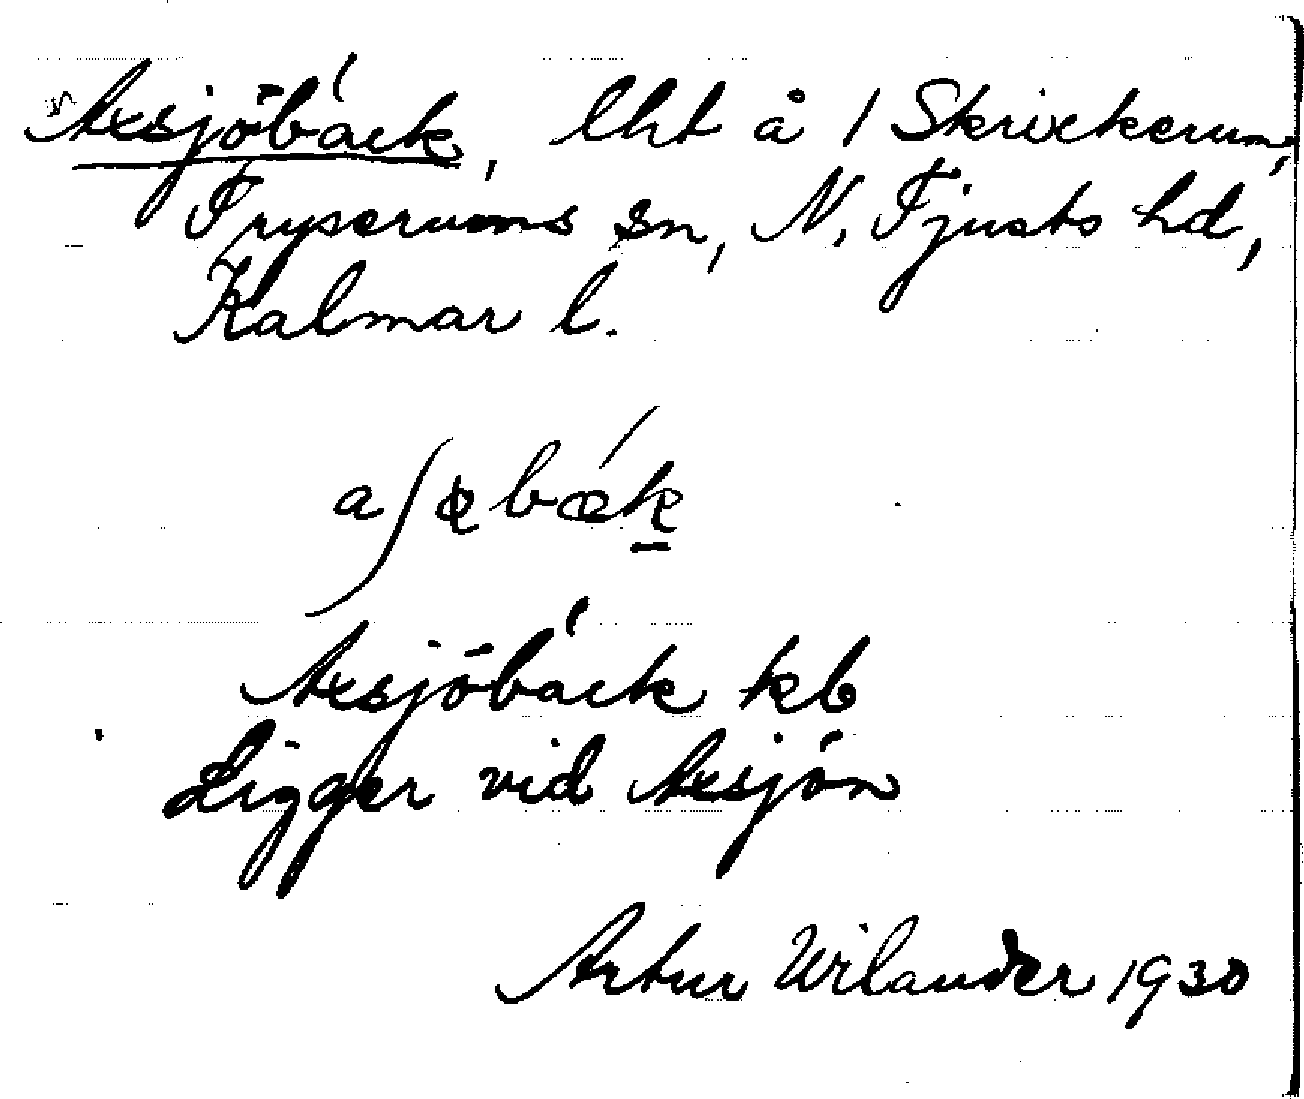 Axsjöbäck, lht å 1 Skrickerum,
Tryserums sn, N. Tjusts hd,
Kalmar l.
Axsjöbäck kb
Ligger vid Axsjön
Artur Wilander 1930